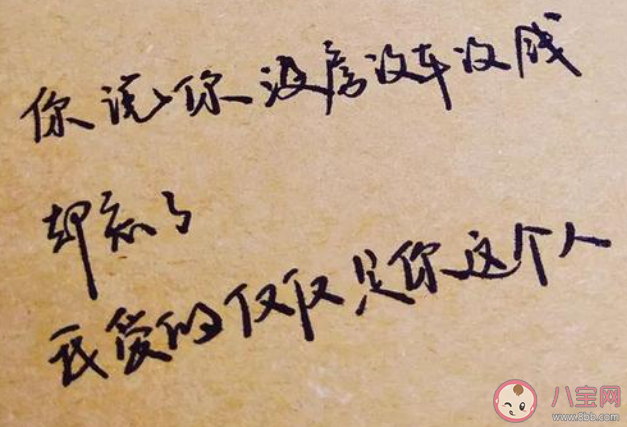 你说你没房没车没钱
却忘了
我爱的仅仅是你这个人
八宝网
www.8bb.com